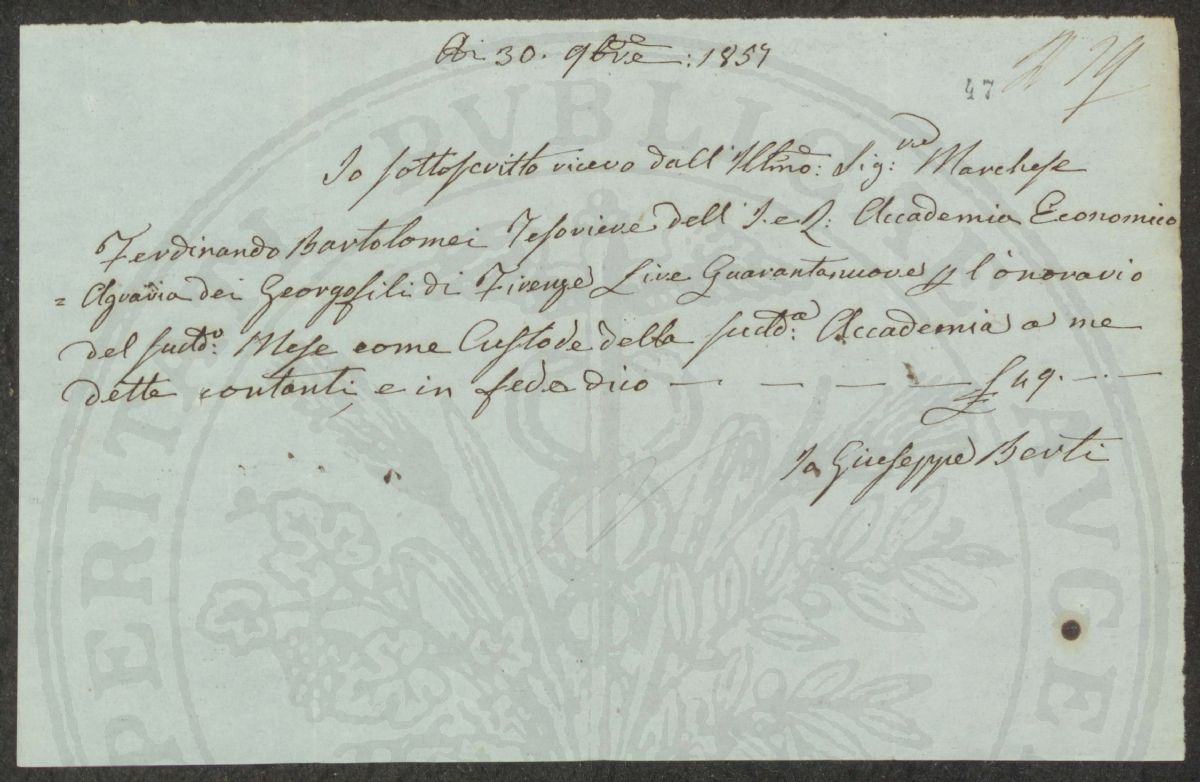 Adi 30. 9bre: 1857
47
Io sottoscritto ricevo dall' Illmo: Sig:re Marchese
Ferdinando Bartolomei Tesoriere dell' I. e R: Accademia Economico
= Agraria dei Georgofili di Firenze Lire Quarantanuove p l'onorario
del sudd:o Mese come Custode della sudd:a Accademia a me
dette contanti, e in fede dico — — — — — £ 49. — —
Io Giuseppe Berti